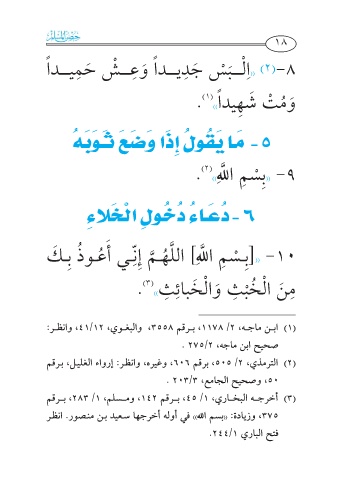 ١٨ حصن المسلم
٨-(٢) «اِلْـبَسْ جَدِيـداً وَعِـشْ حَمِيـداً
وَمُتْ شَهِيداً»(١).
٥- مَا يَقُولُ إِذَا وَضَعَ ثَوْبَهُ
٩- «بِسْمِ اللَّهِ»(٢).
٦- دُعَاءُ دُخُولِ الْخَلَاءِ
١٠- «[بِسْمِ اللَّهِ] اللَّهُمَّ إِنِّي أَعُوذُ بِكَ
مِنَ الْخُبْثِ وَالْخَبائِثِ»(٣).
(١) ابن ماجه، ٢/ ١١٧٨، برقم ٣٥٥٨، والبغوي، ٤١/١٢، وانظر:
صحيح ابن ماجه، ٢٧٥/٢ .
(٢) الترمذي، ٢/ ٥٠٥، برقم ٦٠٦، وغيره، وانظر: إرواء الغليل، برقم
٥٠، وصحيح الجامع، ٢٠٣/٣ .
(٣) أخرجه البخاري، ١/ ٤٥، برقم ١٤٢، ومسلم، ١/ ٢٨٣، برقم
٣٧٥، وزيادة: «بسم الله» في أوله أخرجها سعيد بن منصور. انظر
فتح الباري ٢٤٤/١.